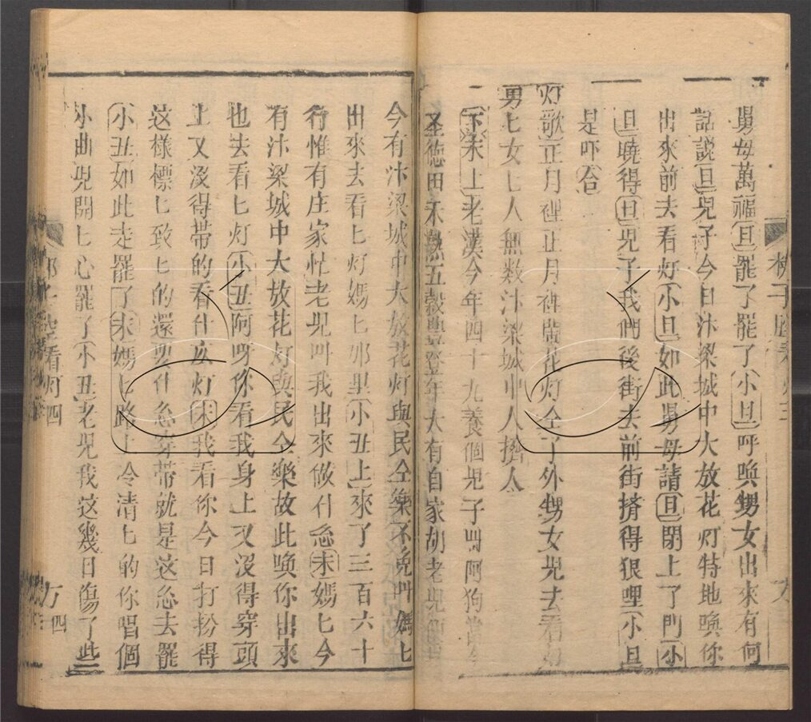 舅母萬福旦罷了罷了小旦呼喚甥女出來有何
話說旦兒子今日汴梁城中大放花灯特地喚你
出來前去看灯小旦如此舅母請旦閉上了門小
旦曉得旦兒子我們後街去前街擠得狠哩小旦
是吓仝
灯歌正月裡正月裡廣花灯仝了外甥女兒去看
男七女七人無数汴梁城中人擠人
下末上老漢今年四十九養個兒子叫阿狗
圣德田禾熟五穀豊登年大有自家胡老兒
今有汴梁城中大放花灯與民仝樂不免叫媽匕
出來去看匕灯媽匕那里小丑上來了三百六十
行惟有庄家忙老兒叫我出來做什么末媽匕今
有汴梁城中大放花灯與民仝樂故此喚你出來
也去看匕灯小丑阿呀你看我身上又沒得穿頭
上又沒得带的看什庅灯末我看你今日打扮得
这樣標匕致匕的還要什么穿带就是这么去罷
小丑如此走罷了末媽匕路上冷清匕的你唱個
小曲兒開匕心罷了小丑老兒我这幾日傷了些
看灯四
四